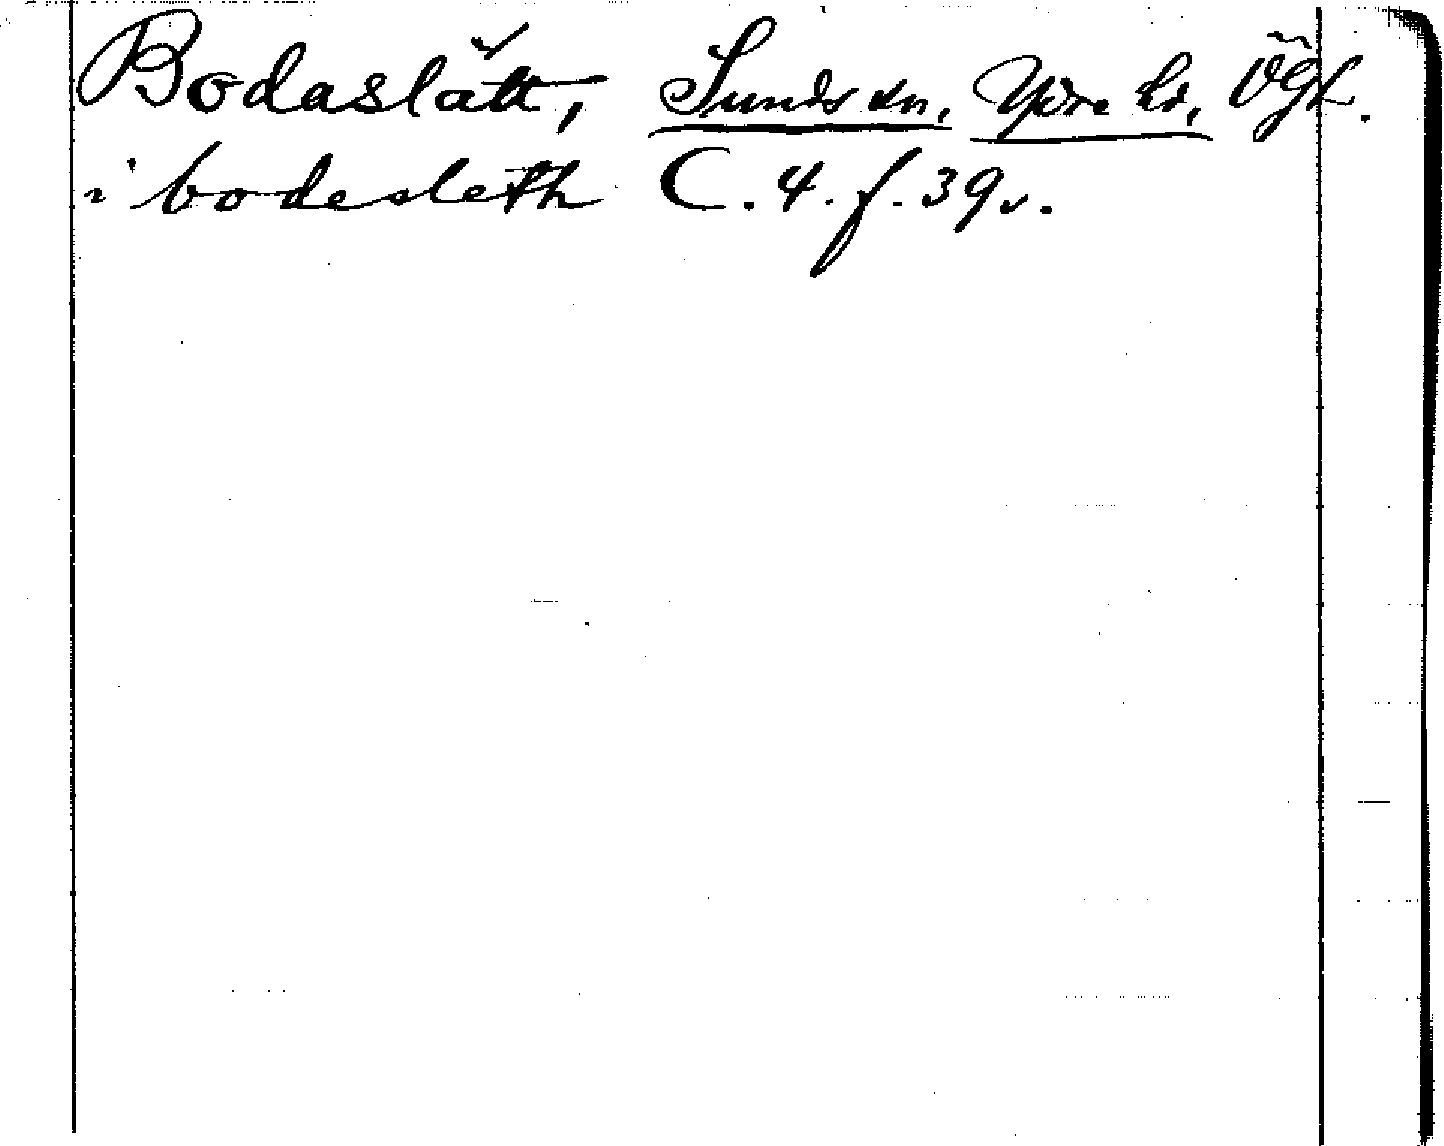 Bodaslätt, Sunds sn, Ydre hd, Ögl.
i bodesleth C. 4. f. 39v.